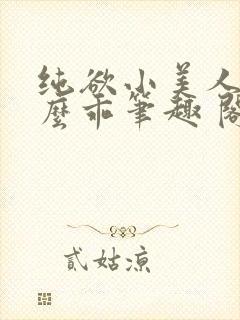 纯欲小美人
麼乖笔趣阁
贰姑凉